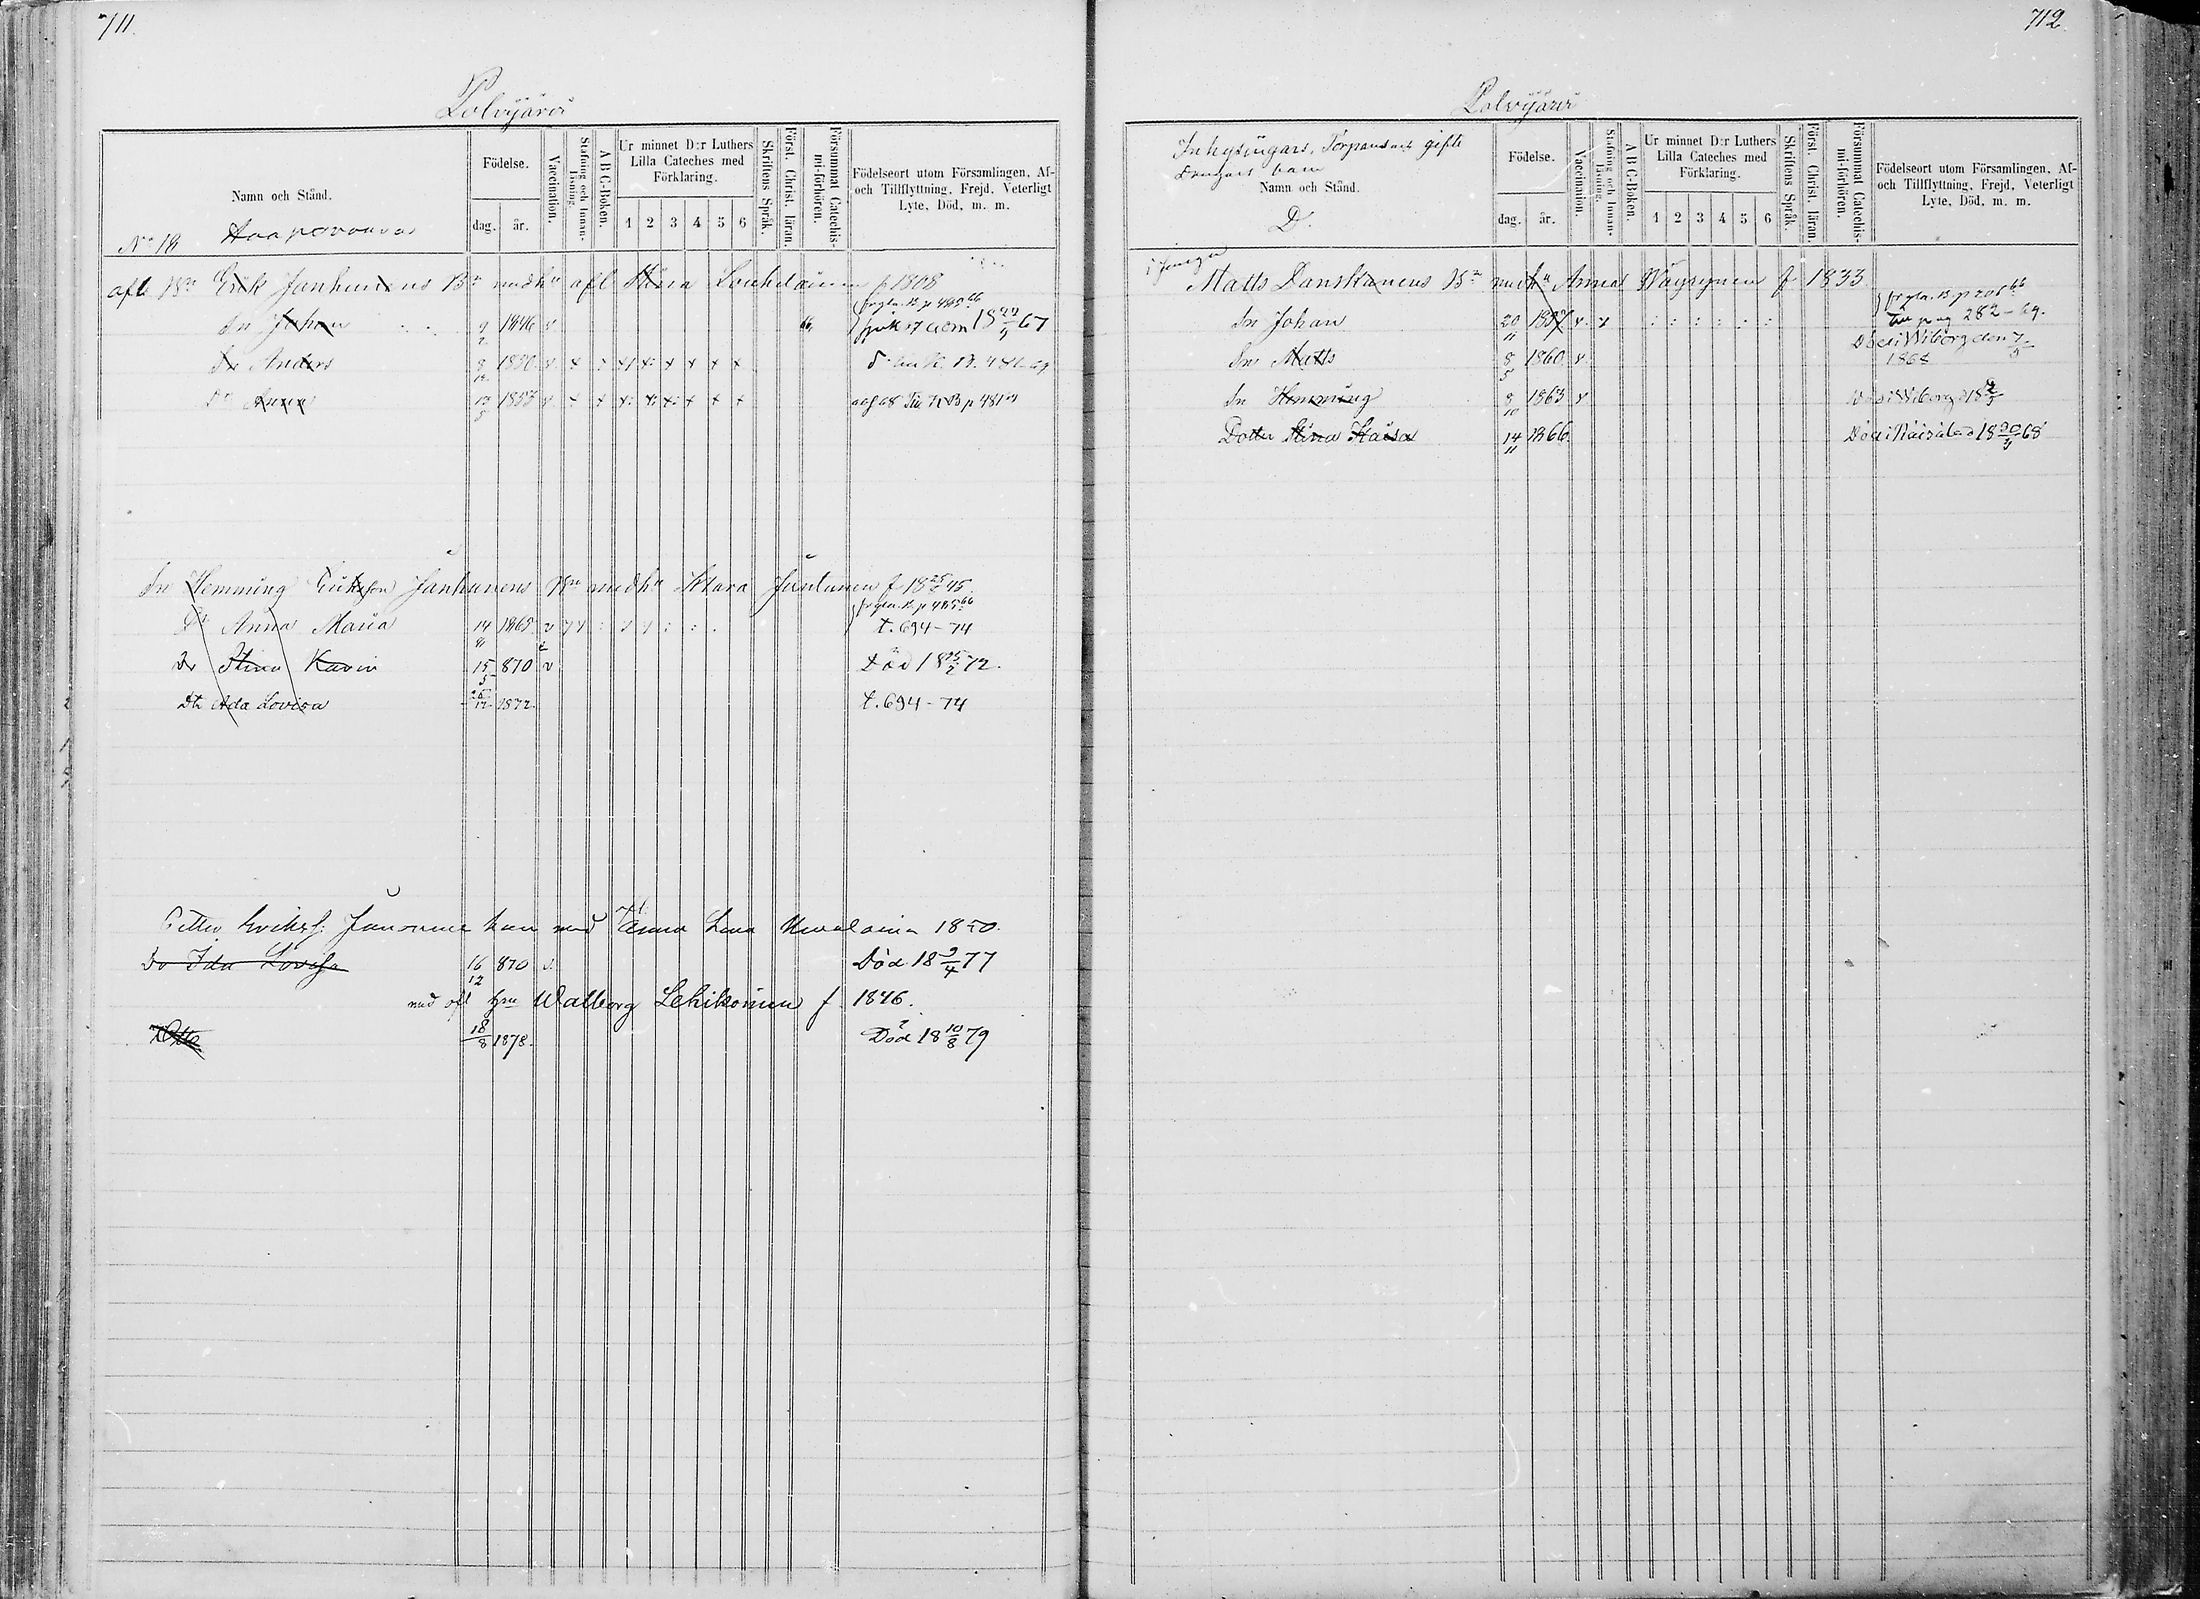 711.
Polvijärvi
Namn och Stånd.
Födelse.
dag.
år.
Vaccination.
Stafning och Innan-läsning.
A B C-Boken.
Ur minnet D:r Luthers Lilla Cateches med Förklaring.
1 2 3 4 5 6
Skriftens Språk.
Först. Christ. läran.
Försummat Catechis-mi-förhören.
Födelseort utom Församlingen, Af- och Tillflyttning, Frejd, Veterligt Lyte, Död, m. m.
No 18 Haapovaara
afl Bn Erik Janhunens Bn med hu afl Stina Louhelainen f 1808
Sn Johan 9/2 1846 v
Sn Anders 8/12 1850 v x : x x x x x x
Dr Anna 1853 v x x x x x x x x
Sn Hemming Eriksson Janhunens Bn med hu Klara Juntunen f 18 45
Dr Anna Maria 14 1865 v t. 694-74
Dr Stina Karin 15/5 870 v Död 18 25/2 72.
Dtr Ada Lovisa 1872. t. 694-74
Petter Eriksf: Janonens barn med Anna Lena 1850.
Dr Ida Lovisa 16/12 870 v. Död 18 9/4 77
med afl Hru Walborg Lehikoinen f. 1846.
Otto 18/8 1878. Död 18 10/8 79
712.
Polvijärvi
Inhysingars, Torpares och gifte Drengars barn
Namn och Stånd.
D.
Födelse.
dag.
år.
Vaccination.
Stafning och Innan-läsning.
A B C-Boken.
Ur minnet D:r Luthers Lilla Cateches med Förklaring.
1 2 3 4 5 6
Skriftens Språk.
Först. Christ. läran.
Försummat Catechis-mi-förhören.
Födelseort utom Församlingen, Af- och Tillflyttning, Frejd, Veterligt Lyte, Död, m. m.
Matts Danskanens Bn med hu Anna Väyrynen f 1833
Sn Johan 20/11 1857 v. x : : : : : : Till pag 282-69.
Sn Matts 8/5 1860 v. Död i Wiborg den 1868
Sn Hemming 8/10 1863 v Död i Wiborg
Dotter Stina Kaisa 14/11 1866. Död i Räisälä 18 68